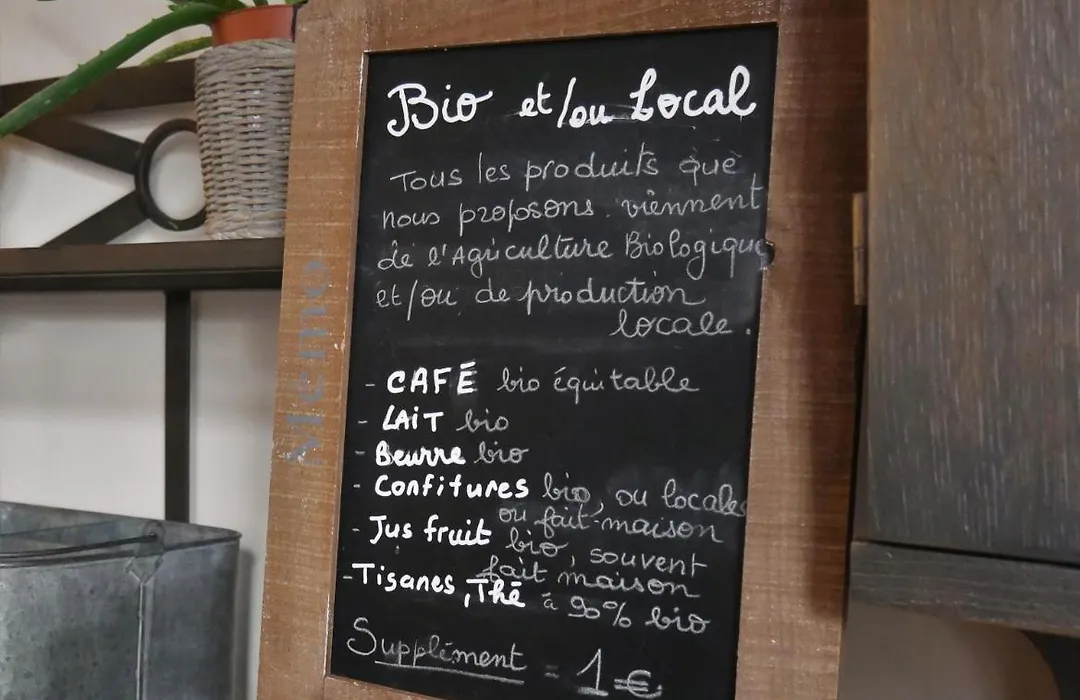 Bio et/ou Local
Tous les produits que
nous proposons viennent
de l'Agriculture Biologique
et/ou de production
locale.
- CAFÉ bio équitable
- LAIT bio
- Beurre bio
- Confitures bio, ou locales
ou fait-maison
- Jus fruit bio, souvent
fait maison
- Tisanes, Thé à 90% bio
Supplément = 1€
Memo